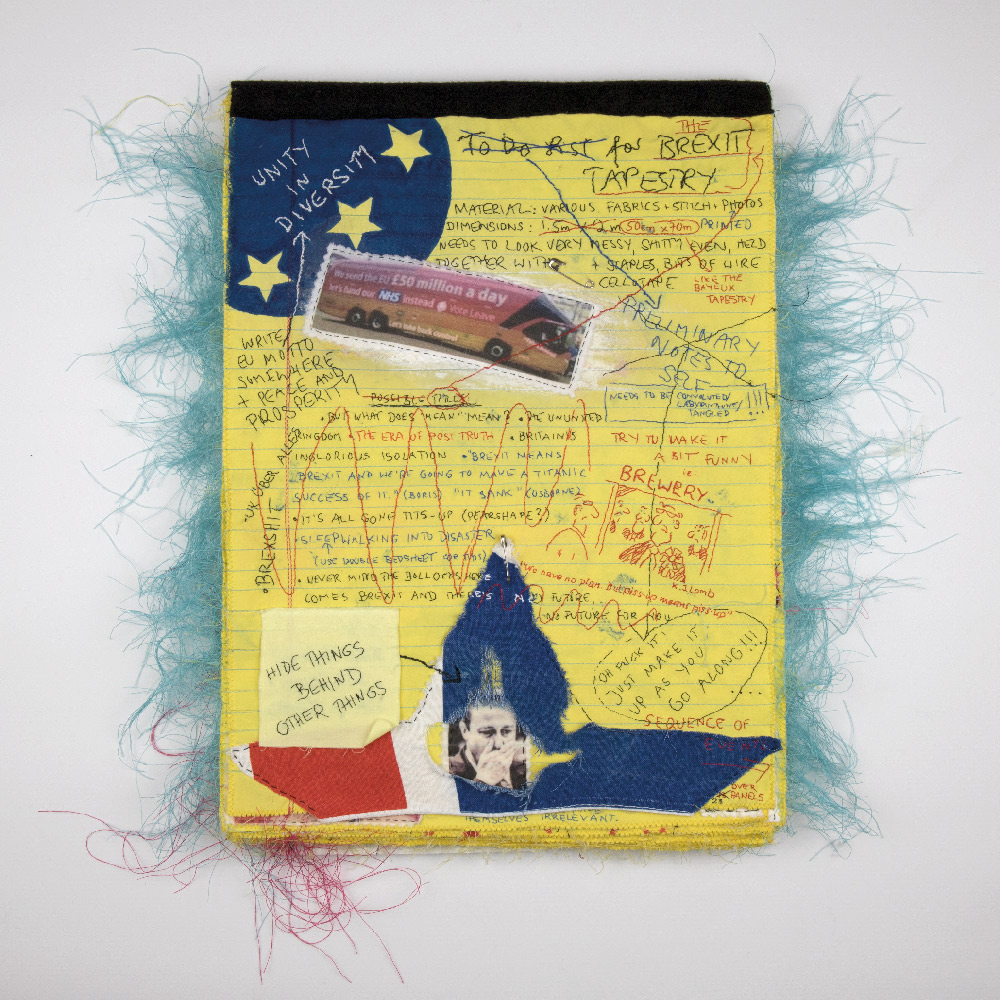 UNITY
IN
DIVERSITY
To Do List for THE BREXIT
TAPESTRY
MATERIAL: VARIOUS FABRICS + STITCH + PHOTOS
DIMENSIONS: 1.5m X 2m (50cm x 70m) PRINTED
NEEDS TO LOOK VERY MESSY, SHITTY EVEN, HELD
TOGETHER WITH + STAPLES, BITS OF WIRE
CELLOTAPE
LIKE THE
BAYEUX
TAPESTRY
We send the EU £50 million a day
let's fund our NHS instead Vote Leave
Let's take back control
PRELIMINARY
NOTES TO
SELF
WRITE
EU MOTTO
SOMEWHERE
+ PEACE AND
PROSPERITY
NEEDS TO BE CONVOLUTED/
LABYRINTHINE/
TANGLED !!!
POSSIBLE TITLES
• BUT WHAT DOES "MEAN" MEAN? • THE UNUNITED
KINGDOM • THE ERA OF POST TRUTH • BRITAIN'S
INGLORIOUS ISOLATION • "BREXIT MEANS
BREXIT AND WE'RE GOING TO MAKE A TITANIC
SUCCESS OF IT." (BORIS) "IT SANK" (OSBORNE)
• IT'S ALL GONE TITS-UP (PEARSHAPE?)
• SLEEPWALKING INTO DISASTER
(USE DOUBLE BEDSHEET FOR THIS)
• NEVER MIND THE BOLLOCKS HERE
COMES BREXIT AND THERE'S NO FUTURE...
NO FUTURE FOR YOU
• BREXSHIT
"UK ÜBER ALLES"
TRY TO MAKE IT
A BIT FUNNY
ie
BREWERY
"We have no plan but piss-up means piss-up"
"OH FUCK IT!
JUST MAKE IT
UP AS YOU
GO ALONG!!!
HIDE THINGS
BEHIND
OTHER THINGS
SEQUENCE OF
EVENTS
OVER
PANELS
THEMSELVES IRRELEVANT.